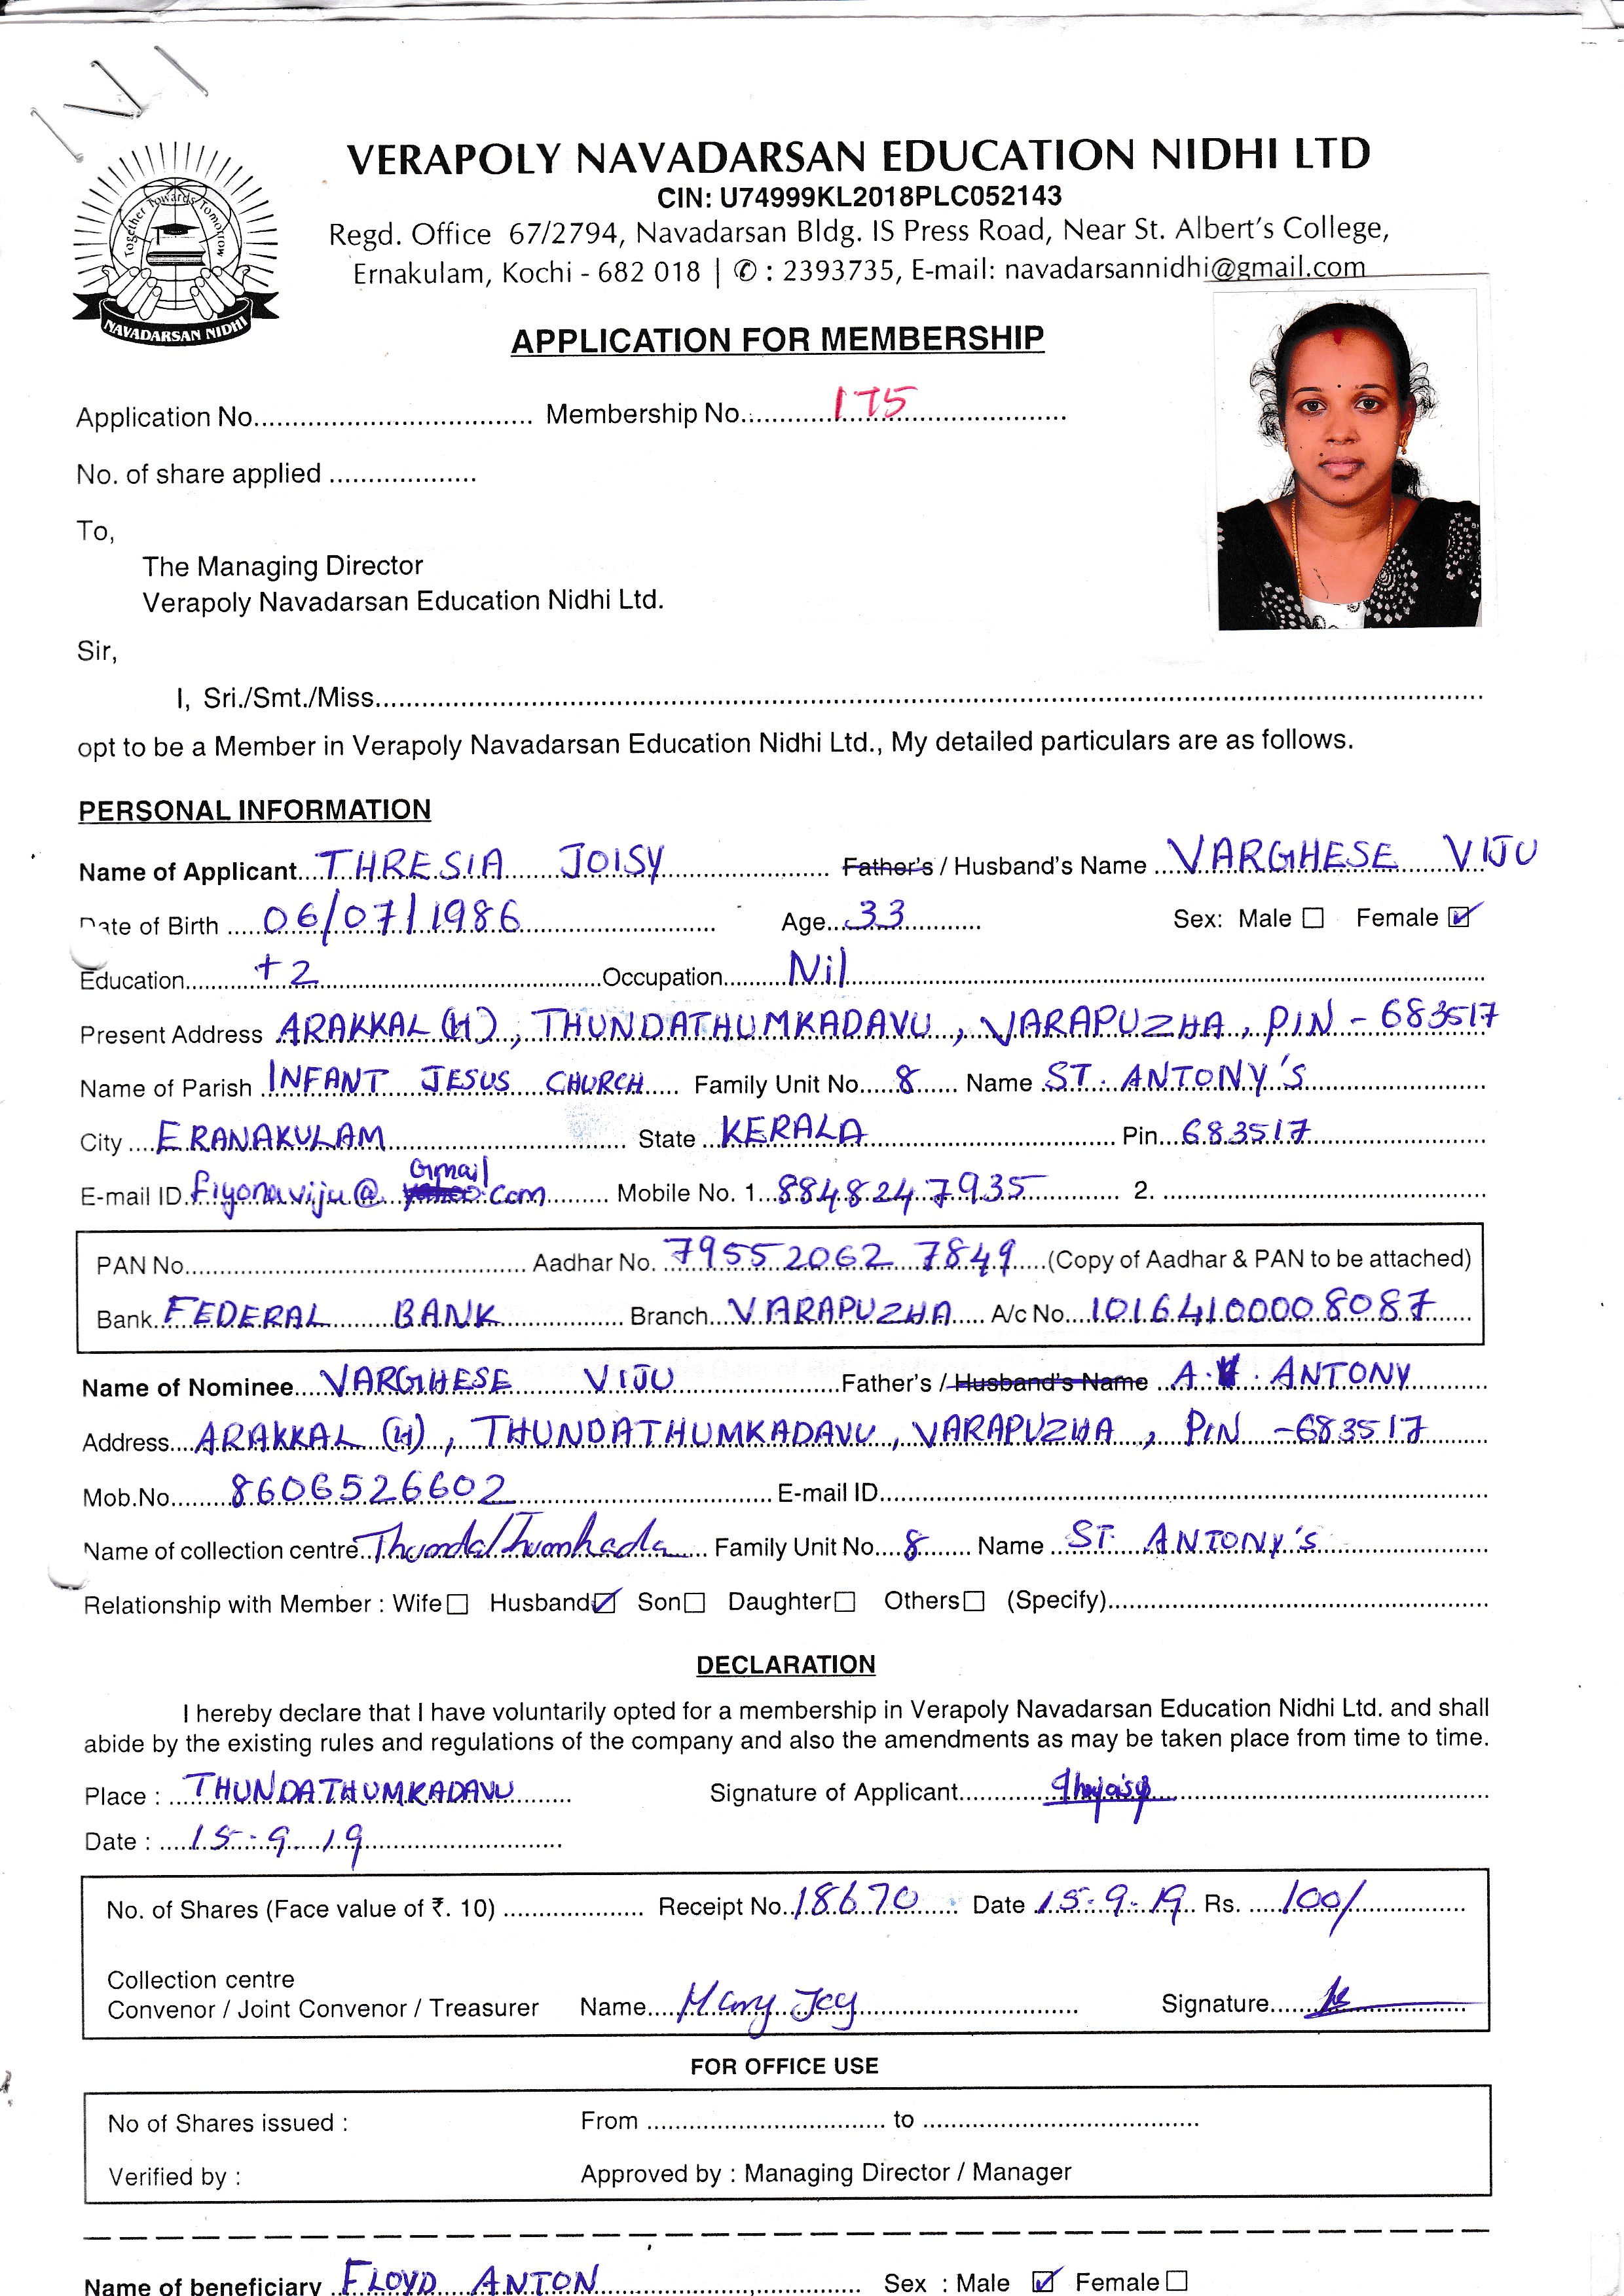 VERAPOLY NAVADARSAN EDUCATION NIDHI LTD
CIN: U74999KL2018PLC052143
Regd. Office 67/2794, Navadarsan Bldg. IS Press Road, Near St. Albert's College,
Ernakulam, Kochi - 682 018 | ✆ : 2393735, E-mail: navadarsannidhi@gmail.com
Together Towards Tomorrow
NAVADARSAN NIDHI
APPLICATION FOR MEMBERSHIP
Application No.................................. Membership No............175....................
No. of share applied ...................
To,
The Managing Director
Verapoly Navadarsan Education Nidhi Ltd.
Sir,
I, Sri./Smt./Miss................................................................
opt to be a Member in Verapoly Navadarsan Education Nidhi Ltd., My detailed particulars are as follows.
PERSONAL INFORMATION
Name of Applicant...THRESIA JOISY............ Father's / Husband's Name ...VARGHESE VIJU
Date of Birth .....06/07/1986............ Age...33........... Sex: Male ☐ Female ☑
Education.........+2............Occupation.........Nil............
Present Address ARAKKAL (H), THUNDATHUMKADAVU, VARAPUZHA, PIN - 683517
Name of Parish INFANT JESUS CHURCH.... Family Unit No....8...... Name ST. ANTONY'S............
City ....ERANAKULAM............ State ..KERALA............ Pin...683517............
E-mail ID.fiyonaviju@ Gmail.com......... Mobile No. 1...8848247935.......... 2. ............
PAN No............................ Aadhar No. 79552062 7849....(Copy of Aadhar & PAN to be attached)
Bank.FEDERAL BANK............ Branch...VARAPUZHA..... A/c No....10164100008087.....
Name of Nominee....VARGHESE VIJU............Father's / Husband's Name ..A. ANTONY............
Address....ARAKKAL (H), THUNDATHUMKADAVU, VARAPUZHA, PIN -683517
Mob.No........8606526602............ E-mail ID............................
Name of collection centre.. Family Unit No....8....... Name ..ST. ANTONY'S............
Relationship with Member : Wife☐ Husband☑ Son☐ Daughter☐ Others☐ (Specify)............................
DECLARATION
I hereby declare that I have voluntarily opted for a membership in Verapoly Navadarsan Education Nidhi Ltd. and shall
abide by the existing rules and regulations of the company and also the amendments as may be taken place from time to time.
Place : ...THUNDATHUMKADAVU....... Signature of Applicant............................
Date : ....15-9-19............
No. of Shares (Face value of ₹. 10) ................... Receipt No..18670..... Date 15-9-19.. Rs. ....100/............
Collection centre
Convenor / Joint Convenor / Treasurer Name....Mary Joy............ Signature............
FOR OFFICE USE
No of Shares issued : From ................................ to .....................................
Verified by : Approved by : Managing Director / Manager
Name of beneficiary ..FLOYD ANTON............ Sex : Male ☑ Female ☐